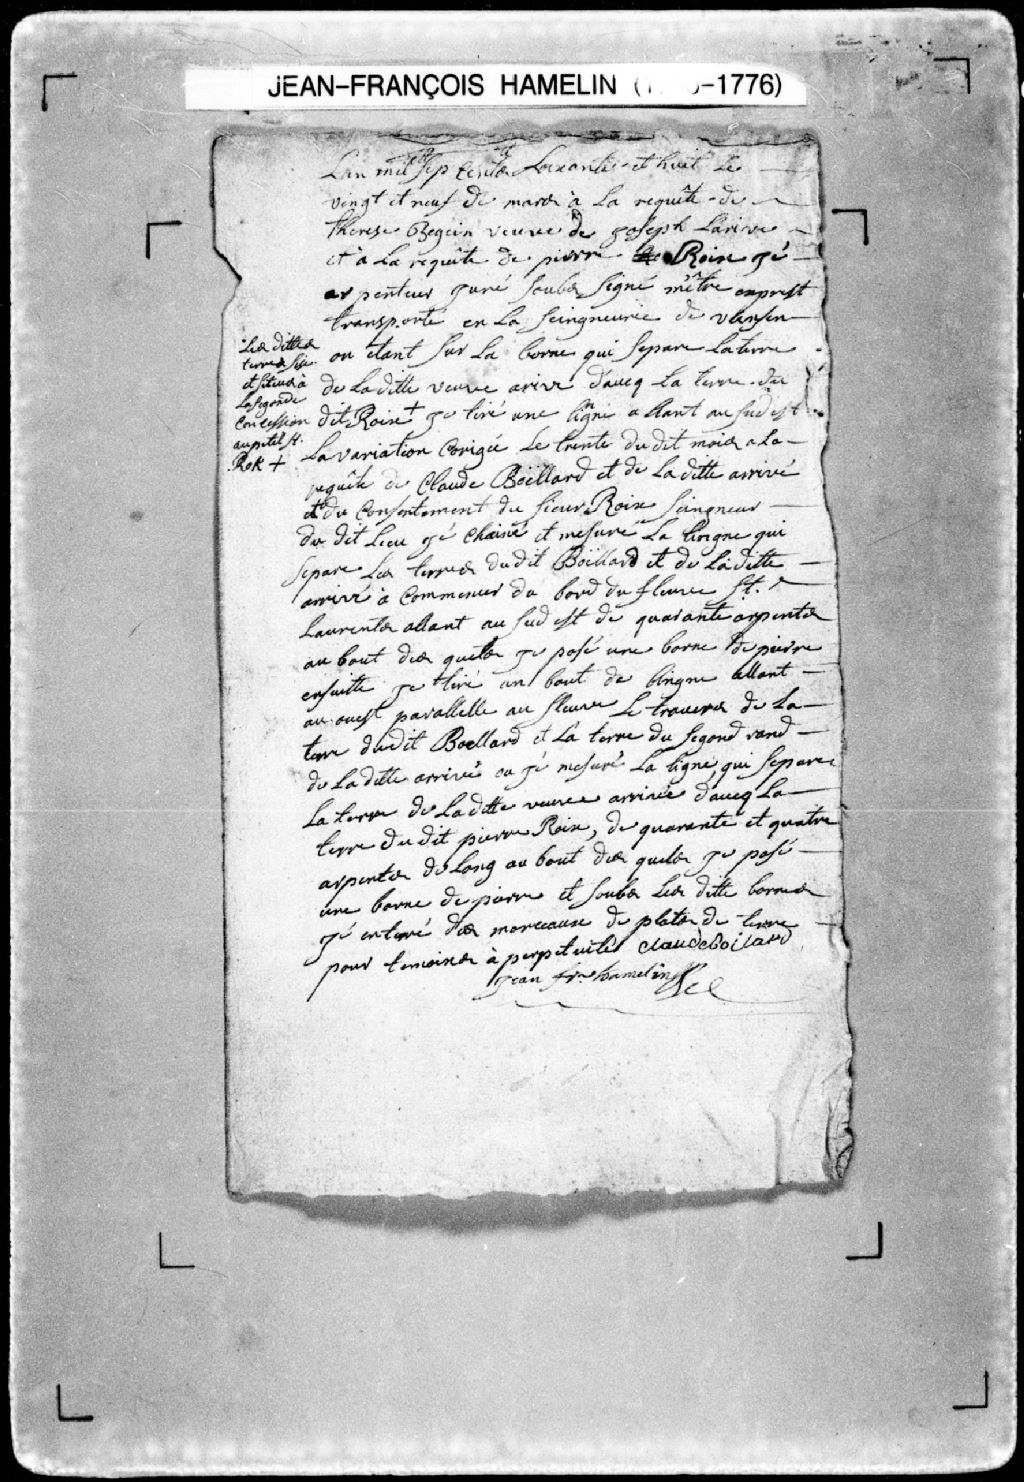 JEAN-FRANÇOIS HAMELIN (1 -1776)
L'an mil sep cents soixante et huit le
vingt et neuf de mars à la requête de
therese Begein veuve de joseph Larive
et à la requête de pierre Roix gé
arpenteur juré soubs signé mêtre exprest
transporté en la seingneurie de vensen
ou étant sur la borne qui separe la terre
de laditte veuve arive daveq la terre du
dit Roix + ge tiré une ligne allant au sud est
Les dittes
terres sise
et situés à
la segonde
concession
au petit St.
Rok +
la variation corigée le trente dudit mois a la
requête de Claude Boëllard et de la ditte arrivé
et du consentement du sieur Roix seingneur
du dit lieu gé chainé et mesuré la lingne qui
separe les terres dudit Boëllard et de la ditte
arrivé à commencer du bord du fleuve St.
Laurents allant au sud est de quarante arpents
au bout des quels ge posé une borne de pierre
ensuitte ge tiré un bout de lingne allant
au ouest parallelle au fleuve le travers de la
terre dudit Boellard et la terre du segond rand
de laditte arrivé ou gé mesuré la ligne qui separe
la terre de laditte veuve arrivée daveq la
terre du dit pierre Roix, de quarante et quatre
arpents de long au bout des quels ge posé
une borne de pierre et soubs les ditte bornes
gé enterré des morceaux de plats de terre
pour temoins à perpetuités claude boilard
jean frs. hamelin